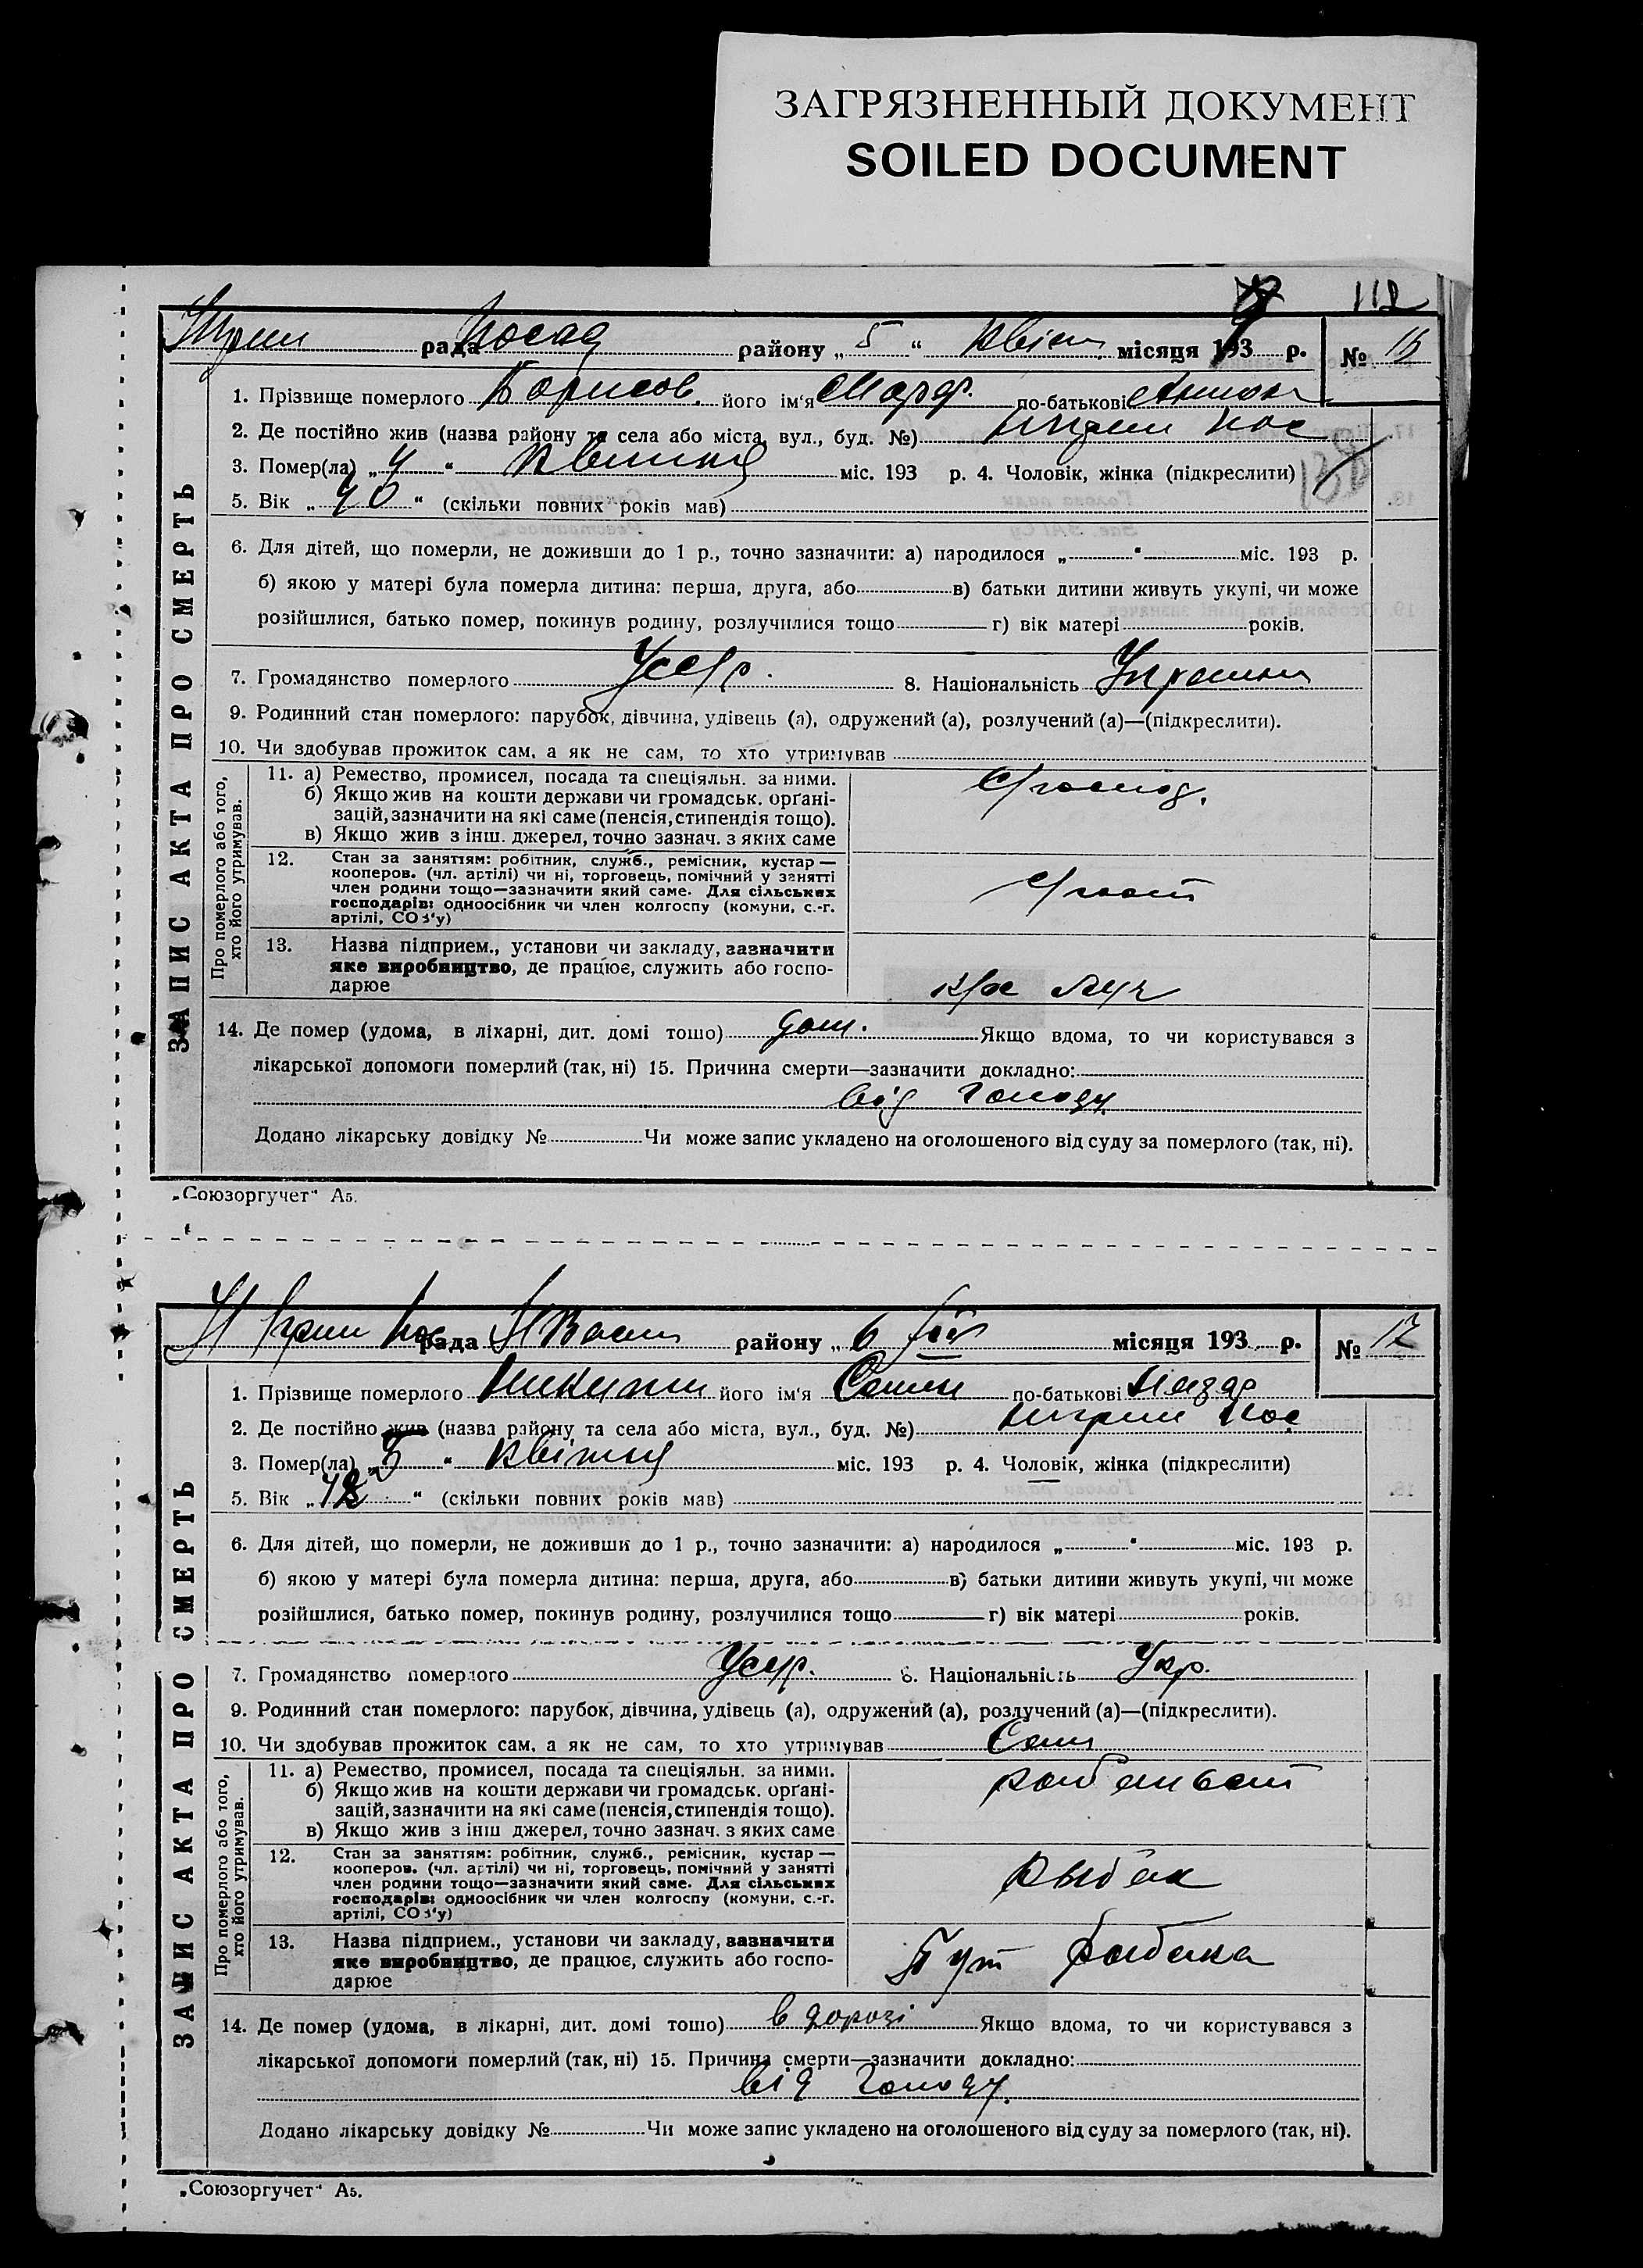 ЗАГРЯЗНЕННЫЙ ДОКУМЕНТ
SOILED DOCUMENT
112
рада Посад району „ 5 “ Квіт. місяця 193 р. № 16
ЗАПИС АКТА ПРО СМЕРТЬ
1. Прізвище померлого Борисов. його ім‘я Марф. по-батькові Антон
2. Де постійно жив (назва району та села або міста, вул., буд. №)
3. Помер(ла) „ 4 “ Квітня міс. 193 р. 4. Чоловік, жінка (підкреслити)
5. Вік „ 40 “ (скільки повних років мав)
6. Для дітей, що померли, не доживши до 1 р., точно зазначити: а) народилося „ “ міс. 193 р.
б) якою у матері була померла дитина: перша, друга, або в) батьки дитини живуть укупі, чи може
розійшлися, батько помер, покинув родину, розлучилися тощо г) вік матері років.
7. Громадянство померлого Уссср. 8. Національність Украинк
9. Родинний стан померлого: парубок, дівчина, удівець (а), одружений (а), розлучений (а)—(підкреслити).
10. Чи здобував прожиток сам, а як не сам, то хто утримував
Про померлого або того, хто його утримував.
11. а) Ремество, промисел, посада та спеціяльн. за ними.
б) Якщо жив на кошти держави чи громадськ. орґані-
зацій, зазначити на які саме (пенсія, стипендія тощо).
в) Якщо жив з інш. джерел, точно зазнач. з яких саме
12. Стан за заняттям: робітник, служб., ремісник, кустар —
кооперов. (чл. артілі) чи ні, торговець, помічний у занятті
член родини тощо—зазначити який саме. Для сільських
господарів: одноосібник чи член колгоспу (комуни, с.-г.
артілі, СОЗ‘у)
13. Назва підприєм., установи чи закладу, зазначити
яке виробництво, де працює, служить або госпо-
дарює
14. Де помер (удома, в лікарні, дит. домі тощо) дом. Якщо вдома, то чи користувався з
лікарської допомоги померлий (так, ні) 15. Причина смерти—зазначити докладно:
від голоду
Додано лікарську довідку № Чи може запис укладено на оголошеного від суду за померлого (так, ні).
„Союзоргучет“ А5.
рада району „ 6 місяця 193 р. № 17
ЗАПИС АКТА ПРО СМЕРТЬ
1. Прізвище померлого його ім‘я Семен по-батькові Назар
2. Де постійно жив (назва району та села або міста, вул., буд. №)
3. Помер(ла) „ 5 “ Квітня міс. 193 р. 4. Чоловік, жінка (підкреслити)
5. Вік „ “ (скільки повних років мав)
6. Для дітей, що померли, не доживши до 1 р., точно зазначити: а) народилося „ “ міс. 193 р.
б) якою у матері була померла дитина: перша, друга, або в) батьки дитини живуть укупі, чи може
розійшлися, батько помер, покинув родину, розлучилися тощо г) вік матері років.
7. Громадянство померлого Усср. 8. Національність Укр.
9. Родинний стан померлого: парубок, дівчина, удівець (а), одружений (а), розлучений (а)—(підкреслити).
10. Чи здобував прожиток сам, а як не сам, то хто утримував Сам
Про померлого або того, хто його утримував.
11. а) Ремество, промисел, посада та спеціяльн. за ними.
б) Якщо жив на кошти держави чи громадськ. орґані-
зацій, зазначити на які саме (пенсія, стипендія тощо).
в) Якщо жив з інш джерел, точно зазнач. з яких саме
12. Стан за заняттям: робітник, служб., ремісник, кустар —
кооперов. (чл. артілі) чи ні, торговець, помічний у занятті
член родини тощо—зазначити який саме. Для сільських
господарів: одноосібник чи член колгоспу (комуни, с.-г.
артілі, СОЗ‘у)
Рыбак
13. Назва підприєм., установи чи закладу, зазначити
яке виробництво, де працює, служить або госпо-
дарює
Пут Рыбака
14. Де помер (удома, в лікарні, дит. домі тощо) в дорозі Якщо вдома, то чи користувався з
лікарської допомоги померлий (так, ні) 15. Причина смерти—зазначити докладно:
від голоду.
Додано лікарську довідку № Чи може запис укладено на оголошеного від суду за померлого (так, ні).
„Союзоргучет“ А5.